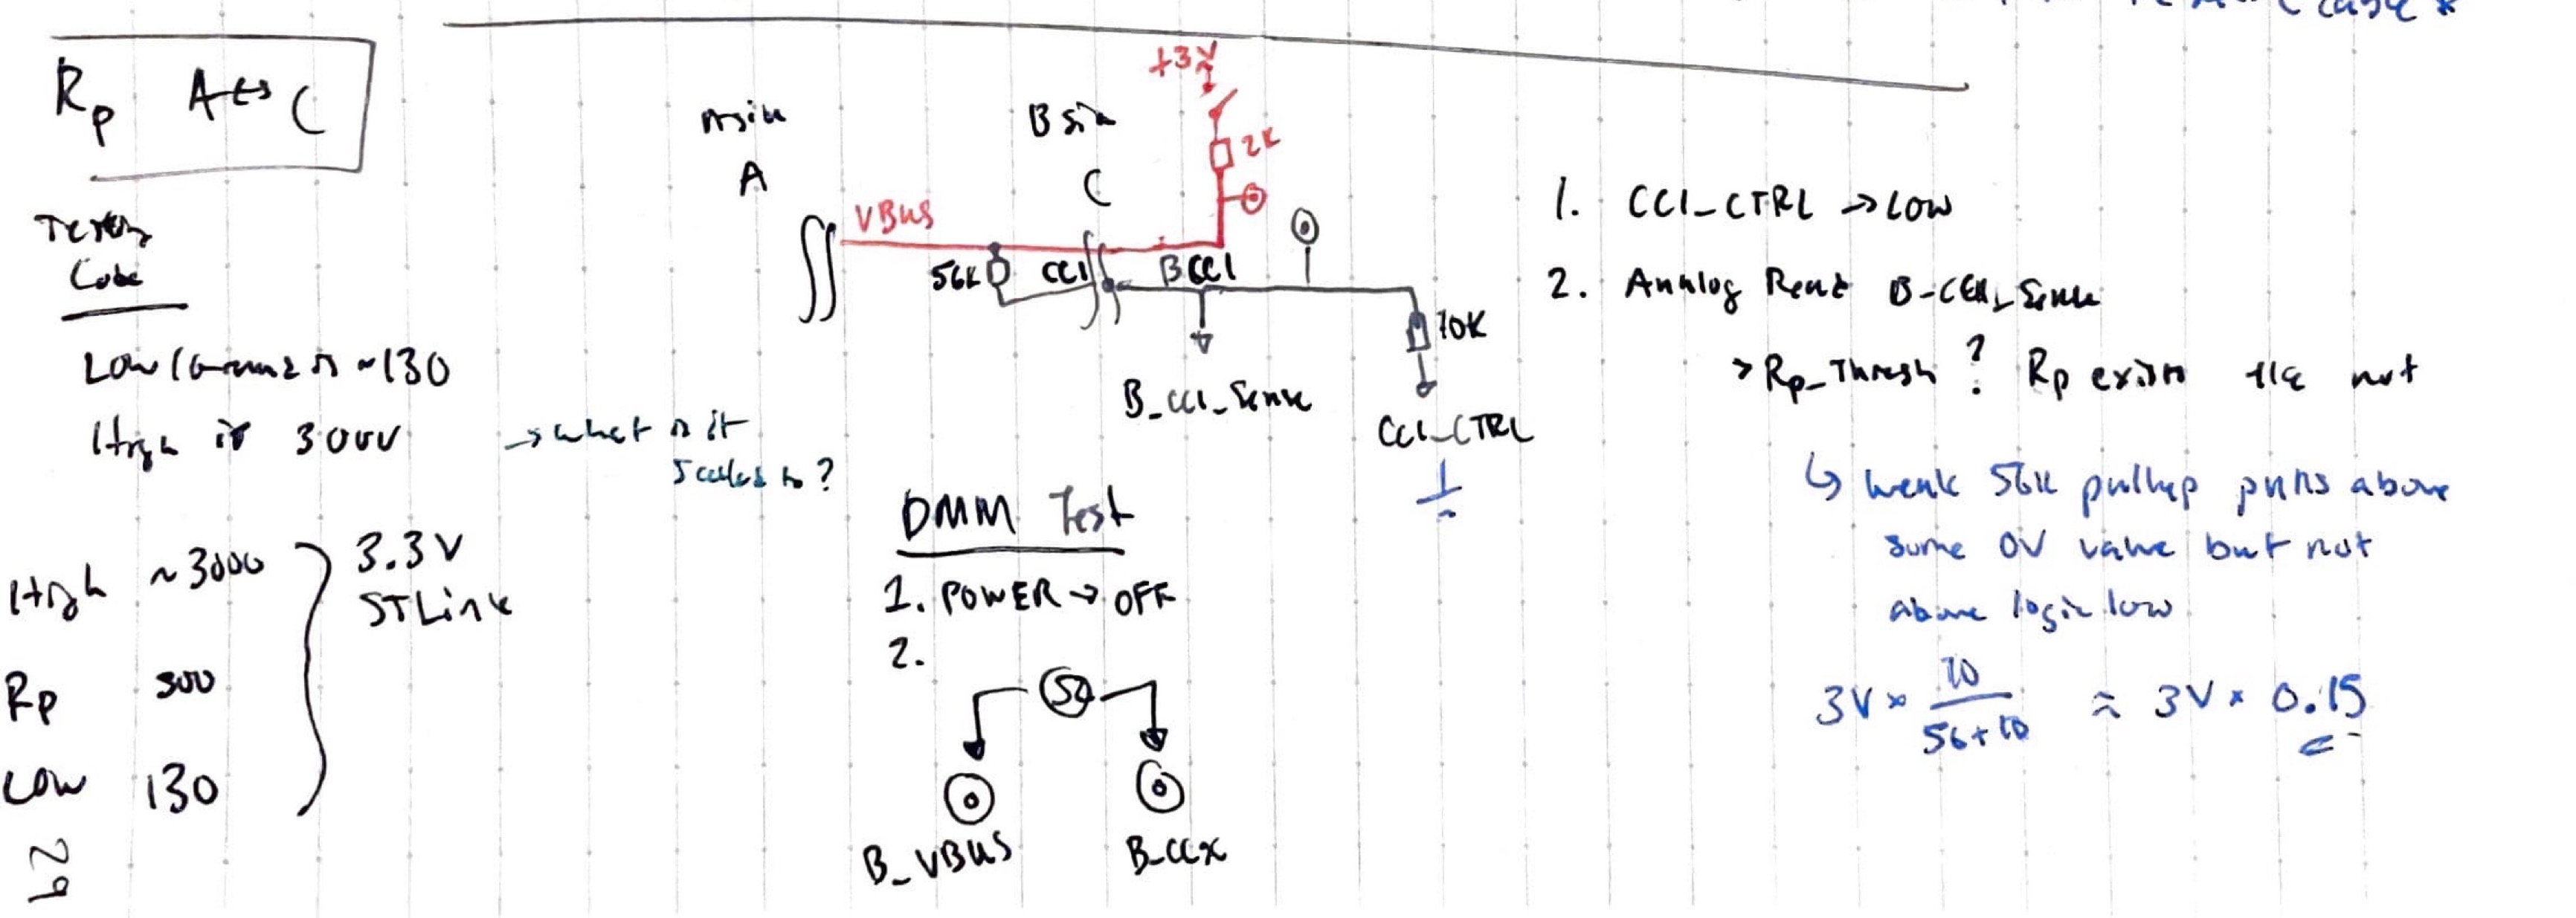 Rp A↔C
Testing
Code
Low (Ground) is ~130
High is 3000 → what is it
scaled to?
High ~3000
3.3V
STLink
Rp 500
Low 130
29
A side
A
B side
C
+3V
2K
VBUS
56K
CC1
B CC1
10K
B_CC1_Sense
CC1_CTRL
DMM Test
1. POWER → OFF
2.
Ω
B_VBUS
B_CCX
1. CC1_CTRL → LOW
2. Analog Read B_CC1_Sense
> Rp_Thresh ? Rp exists else not
↳ weak 56K pullup pulls above
some 0V value but not
above logic low
3V × 10 / 56+10 ≈ 3V × 0.15